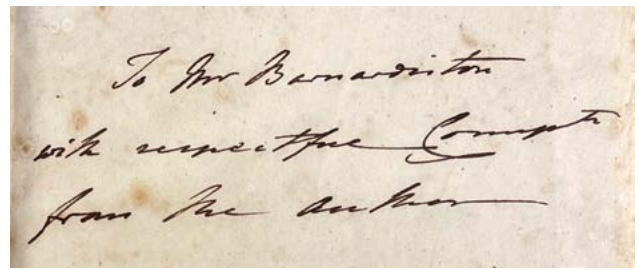 To Mr Barnardiston
with respectful Compts
from the author